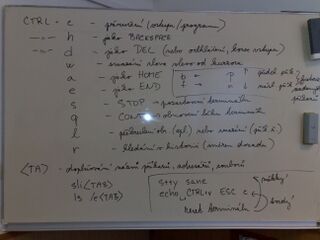 CTRL - c - přerušení (vstupu/programu)
h - jako BACKSPACE
d - jako DEL (nebo odhlášení, konec vstupu)
w - smazání slova vlevo od kurzoru
a - jako HOME
e - jako END
p ←
f →
p ↑
n ↓
s - STOP - pozastavení terminálu
q - CONT - obnovení běhu terminálu
l -
r - hledání v historii
<TAB> - doplňování názvů příkazů, adresářů, souborů
sli<TAB>
ls /e<TAB>
stty sane
echo CTRLv ESC c
reset terminálu